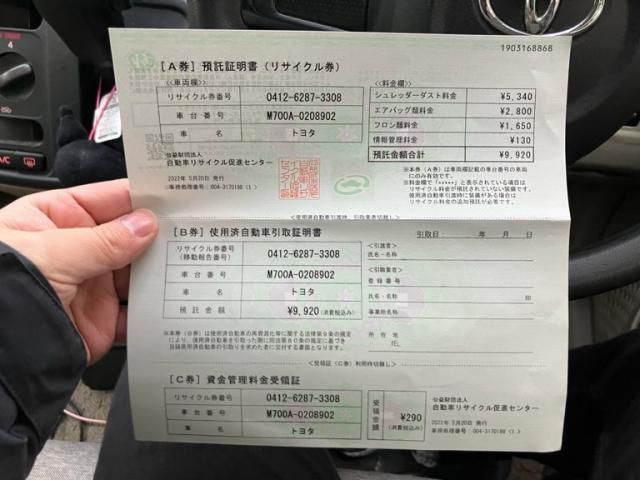 1903168868
[A券] 預託証明書 (リサイクル券)
<<車両欄>>
リサイクル券番号 0412-6287-3308
車台番号 M700A-0208902
車名 トヨタ
公益財団法人
自動車リサイクル促進センター
2022年 5月20日 発行
<<料金欄>>
シュレッダーダスト料金 ¥5,340
エアバッグ類料金 ¥2,800
フロン類料金 ¥1,650
情報管理料金 ¥130
預託金額合計 ¥9,920
※本券(A券)は車両欄記載の車台番号の車両
にのみ有効です。
<使用済自動車引渡時、引取業者切離し>
[B券] 使用済自動車引取証明書
引取日: 年 月 日
リサイクル券番号
(移動報告番号) 0412-6287-3308
車台番号 M700A-0208902
車名 トヨタ
預託金額 ¥9,920(消費税込み)
<引渡者>
氏名・名称
<引取業者>
登録番号
氏名・名称 印
事業所名称
所在地
TEL
<受領証(C券)利用時切離し>
[C券] 資金管理料金受領証
リサイクル券番号 0412-6287-3308
車台番号 M700A-0208902
車名 トヨタ
受領金額 ¥290
(消費税込み)
公益財団法人
自動車リサイクル促進センター
2022年 5月20日 発行
4